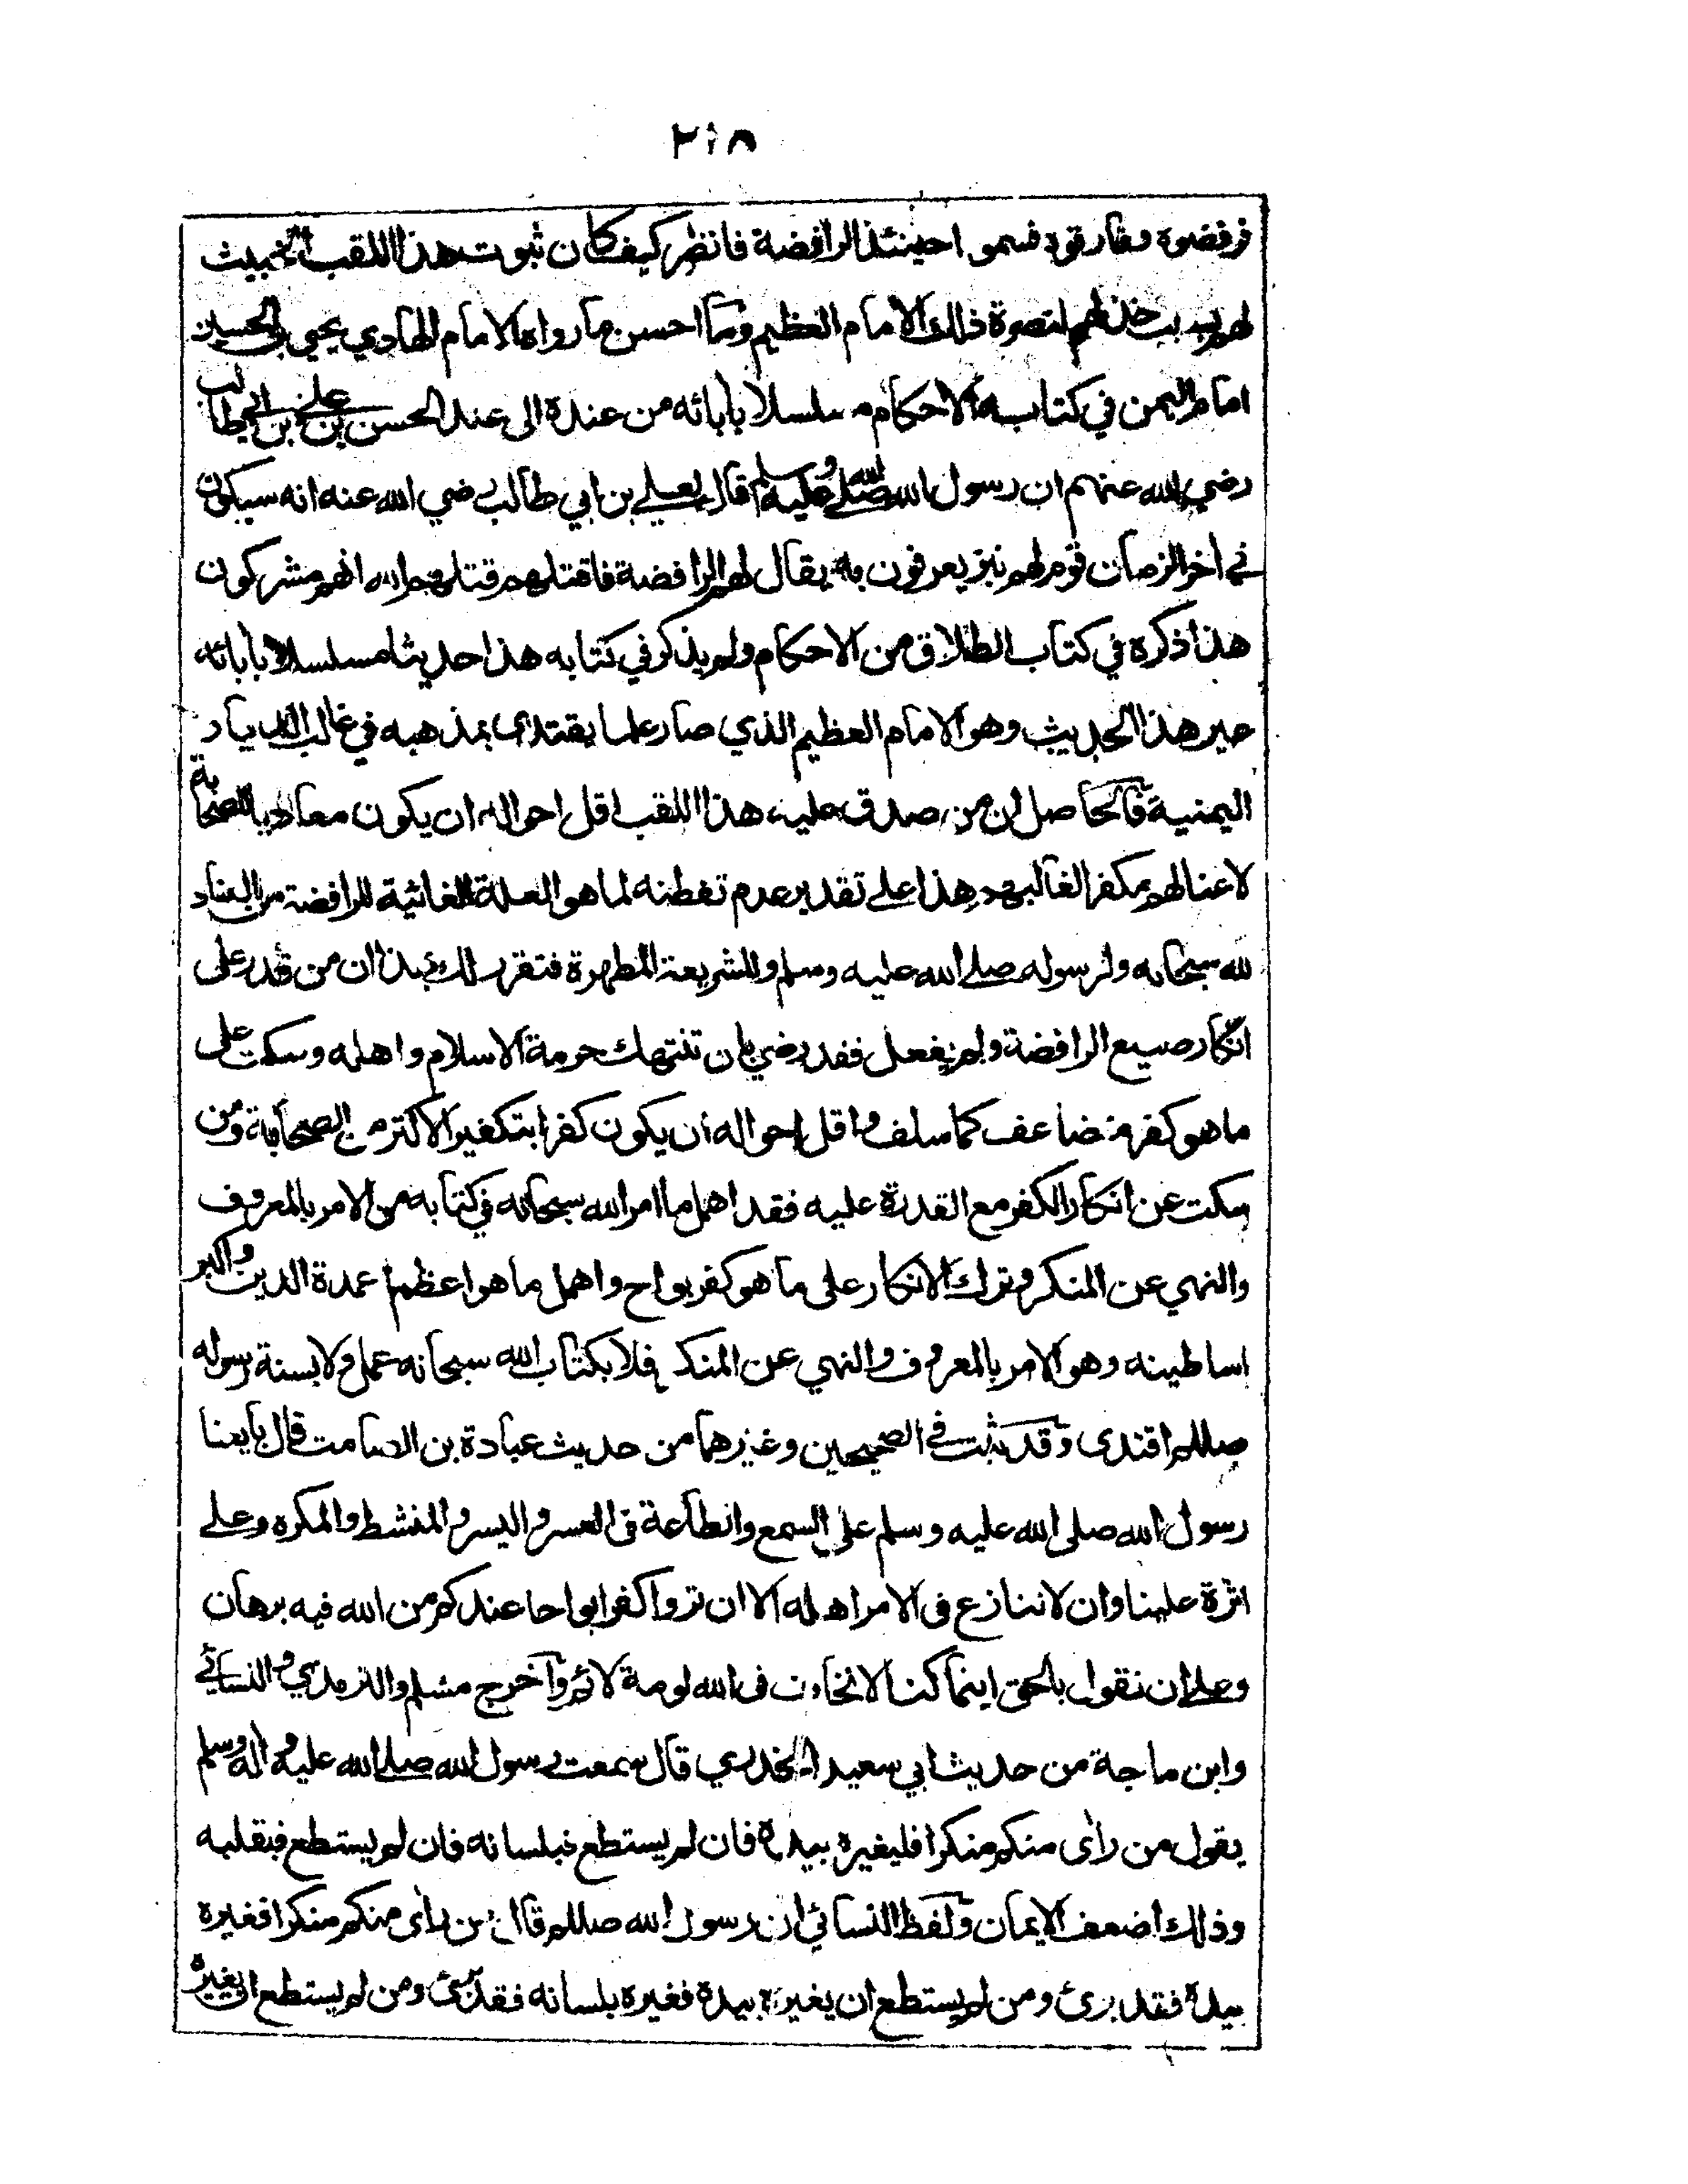 ٢١٨
فرفضوه وفارقوه فسموا حينئذ الرافضة فانظر كيف كان ثبوت هذا اللقب الخبيث
لهم بسبب خذلهم لنصرة ذلك الامام العظيم وما احسن ما رواه الامام الهادي يحيى بن الحسين
امام اليمن في كتابه الاحكام مسلسلا بآبائه من عنده الى عند الحسن بن علي بن ابي طالب
رضي الله عنهم ان رسول الله صلى الله عليه وسلم قال لعلي بن ابي طالب رضي الله عنه انه سيكون
في اخر الزمان قوم لهم نبز يعرفون به يقال لهم الرافضة فاقتلهم قتلهم الله انهم مشركون
هذا ذكره في كتاب الطلاق من الاحكام ولم يذكر في كتابه هذا حديثا مسلسلا بآبائه
غير هذا الحديث وهو الامام العظيم الذي صار علما يقتدى بمذهبه في غالب الديار
اليمنية فالحاصل ان من صدق عليه هذا اللقب اقل احواله ان يكون معاديا للصحابة
لاعنا لهم مكفرا لغالبهم هذا على تقدير عدم تفطنه لما هو العلة الغائية للرافضة من العناد
لله سبحانه ولرسوله صلى الله عليه وسلم وللشريعة المطهرة فتقرر لك بهذا ان من قدر على
انكار صنيع الرافضة ولم يفعل فقد رضي بان تنتهك حرمة الاسلام واهله وسكت على
ما هو كفر متضاعف كما سلف واقل احواله ان يكون كفرا بتكفير الاكثر من الصحابة ومن
سكت عن انكار الكفر مع القدرة عليه فقد اهمل ما امر الله سبحانه في كتابه من الامر بالمعروف
والنهي عن المنكر وترك الانكار على ما هو كفر بواح واهمل ما هو اعظم اعمدة الدين واكبر
اساطينه وهو الامر بالمعروف والنهي عن المنكر فلا بكتاب الله سبحانه عمل ولا بسنة رسوله
صللم اقتدى وقد ثبت في الصحيحين وغيرهما من حديث عبادة بن الصامت قال بايعنا
رسول الله صلى الله عليه وسلم على السمع والطاعة فى العسر واليسر والمنشط والمكره وعلى
اثرة علينا وان لا ننازع فى الامر اهله الا ان تروا كفرا بواحا عندكم من الله فيه برهان
وعلى ان نقول بالحق اينما كنا لا نخاف فى الله لومة لائم واخرج مسلم والترمذي والنسائي
وابن ماجة من حديث ابي سعيد الخدري قال سمعت رسول الله صلى الله عليه واله وسلم
يقول من رأى منكم منكرا فليغيره بيده فان لم يستطع فبلسانه فان لم يستطع فبقلبه
وذلك اضعف الايمان ولفظ النسائي ان رسول الله صللم قال من رأى منكم منكرا فغيره
بيده فقد برئ ومن لم يستطع ان يغيره بيده فغيره بلسانه فقد برئ ومن لم يستطع ان يغيره